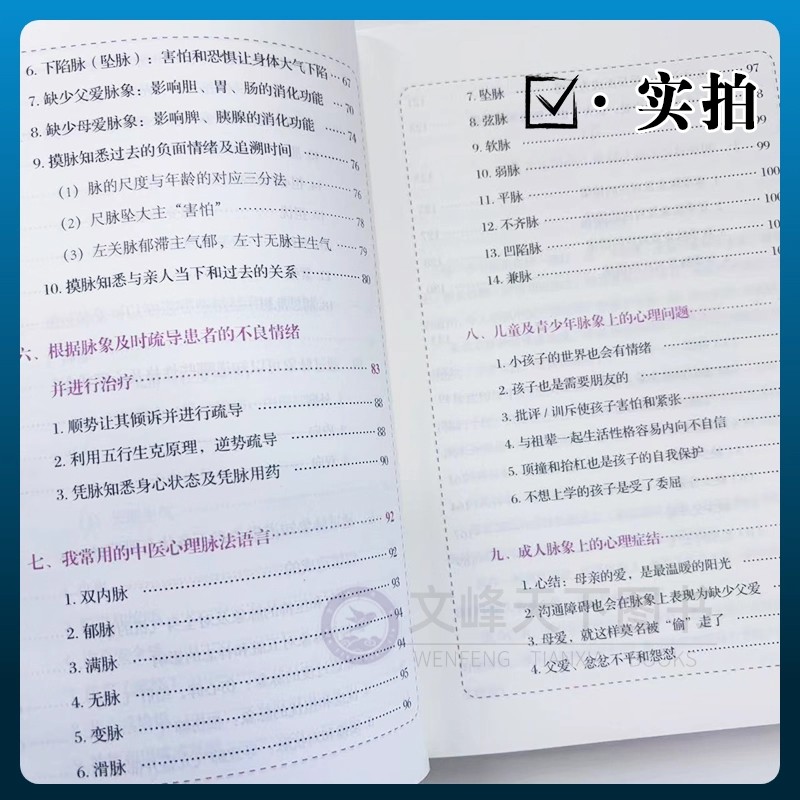 6. 下陷脉（坠脉）：害怕和恐惧让身体大气下陷 … 67
7. 缺少父爱脉象：影响胆、胃、肠的消化功能 … 70
8. 缺少母爱脉象：影响脾、胰腺的消化功能 … 74
9. 摸脉知悉过去的负面情绪及追溯时间 … 76
（1）脉的尺度与年龄的对应三分法 … 76
（2）尺脉坠大主“害怕” … 78
（3）左关脉郁滞主气郁，左寸无脉主生气 … 79
10. 摸脉知悉与亲人当下和过去的关系 … 80
六、根据脉象及时疏导患者的不良情绪
并进行治疗 … 83
1. 顺势让其倾诉并进行疏导 … 88
2. 利用五行生克原理，逆势疏导 … 88
3. 凭脉知悉身心状态及凭脉用药 … 90
七、我常用的中医心理脉法语言 … 92
1. 双内脉 … 92
2. 郁脉 … 93
3. 满脉 … 94
4. 无脉 … 94
5. 变脉 … 95
6. 滑脉 … 96
实拍
7. 坠脉 … 97
8. 弦脉
9. 软脉 … 99
10. 弱脉 … 99
11. 平脉 … 100
12. 不齐脉 … 100
13. 凹陷脉
14. 兼脉
八、儿童及青少年脉象上的心理问题
1. 小孩子的世界也会有情绪
2. 孩子也是需要朋友的
3. 批评/训斥使孩子害怕和紧张
4. 与祖辈一起生活性格容易内向不自信
5. 顶撞和抬杠也是孩子的自我保护
6. 不想上学的孩子是受了委屈
九、成人脉象上的心理症结
1. 心结：母亲的爱，是最温暖的阳光
2. 沟通障碍也会在脉象上表现为缺少父爱
3. 母爱，就这样莫名被“偷”走了
4. 父爱，忿忿不平和怨怼
文峰天下图书
WENFENG TIANXIA BOOKS